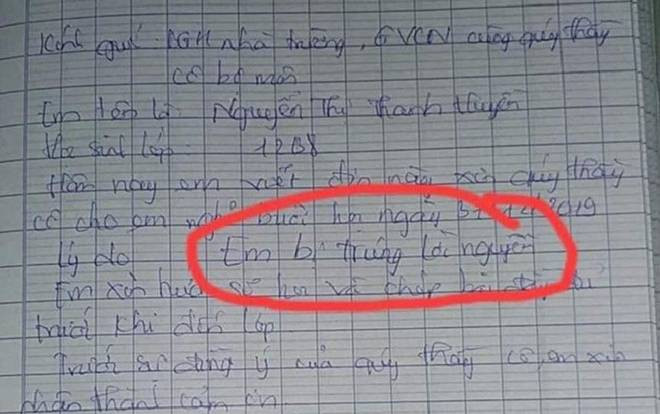 Kính quí BGH nhà trường, GVCN cùng quý thầy
cô bộ môn
Em tên là Nguyễn Thị Thanh Huyền
Học sinh lớp 12B8
Hôm nay em viết đơn này xin quý thầy
cô cho em nghỉ buổi học ngày 2019
Lý do Em bị trúng lời nguyền
Em xin hứa sẽ học và chép bài đầy đủ
trước khi đến lớp
Trước sự đồng ý của quý thầy cô, em xin
chân thành cảm ơn.